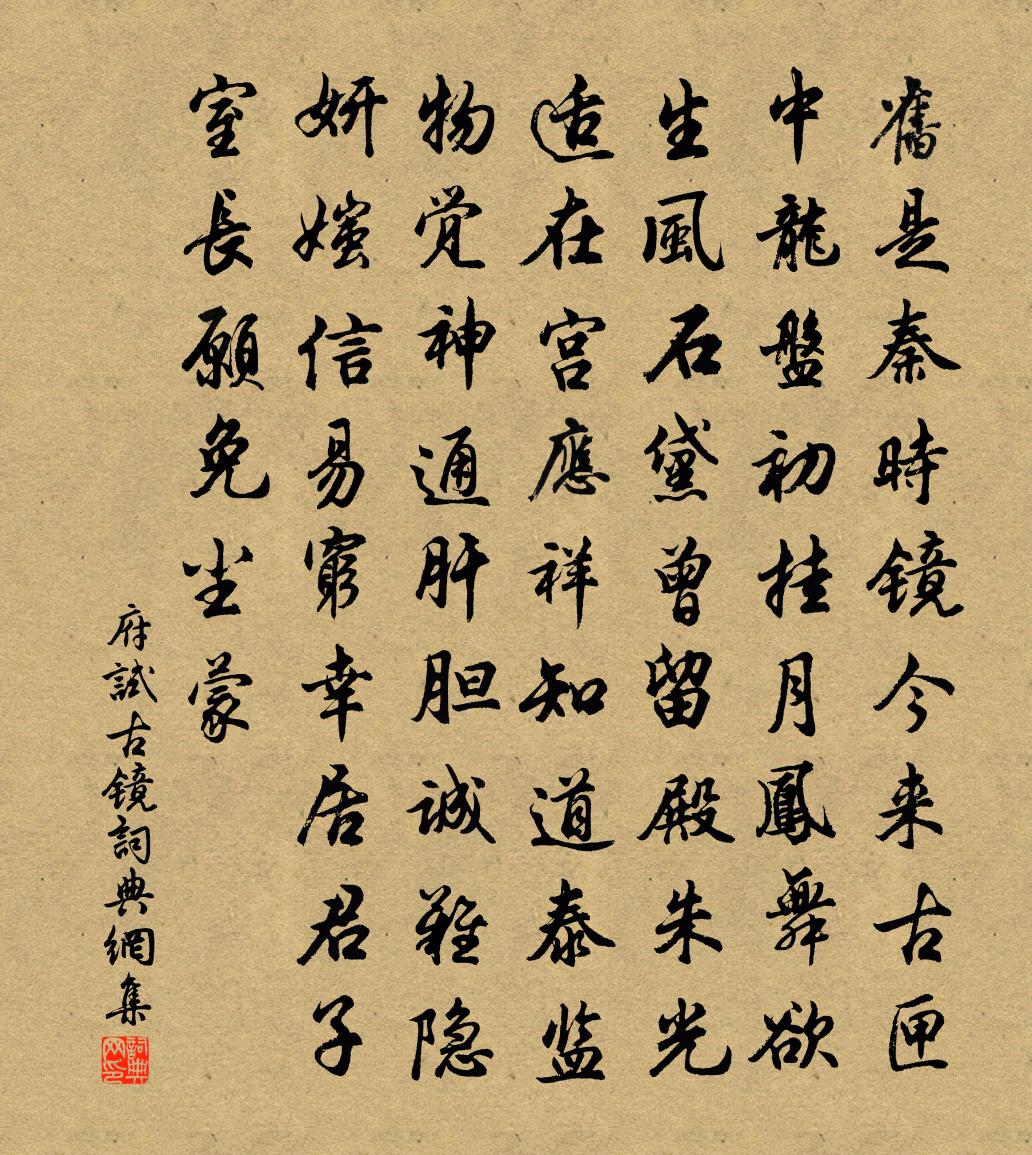 舊是秦時镜今来古匣
中龍盤初挂月鳳舞欲
生風石黛曾留殿朱光
适在宫應祥知道泰监
物觉神通肝胆誠難隐
妍媸信易窮幸居君子
室長願免尘蒙
府試古镜詞典網集
詞典网印